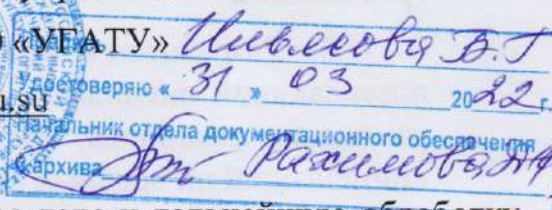 «УГАТУ» Ильясова Б.Г
Удостоверяю « 31 » 03 2022 г.
u.su
Начальник отдела документационного обеспечения
и архива Рахимова
обработку